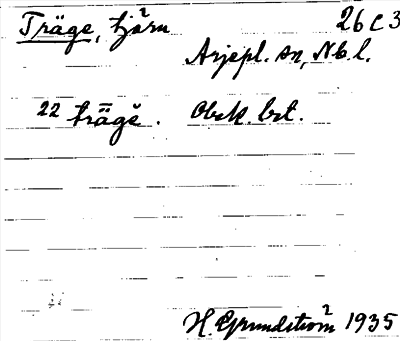 Träge, tjärn 26 C 3
Arjepl. sn, Nb. l.
22 träge. Obek. bet.
H. Grundström 1935